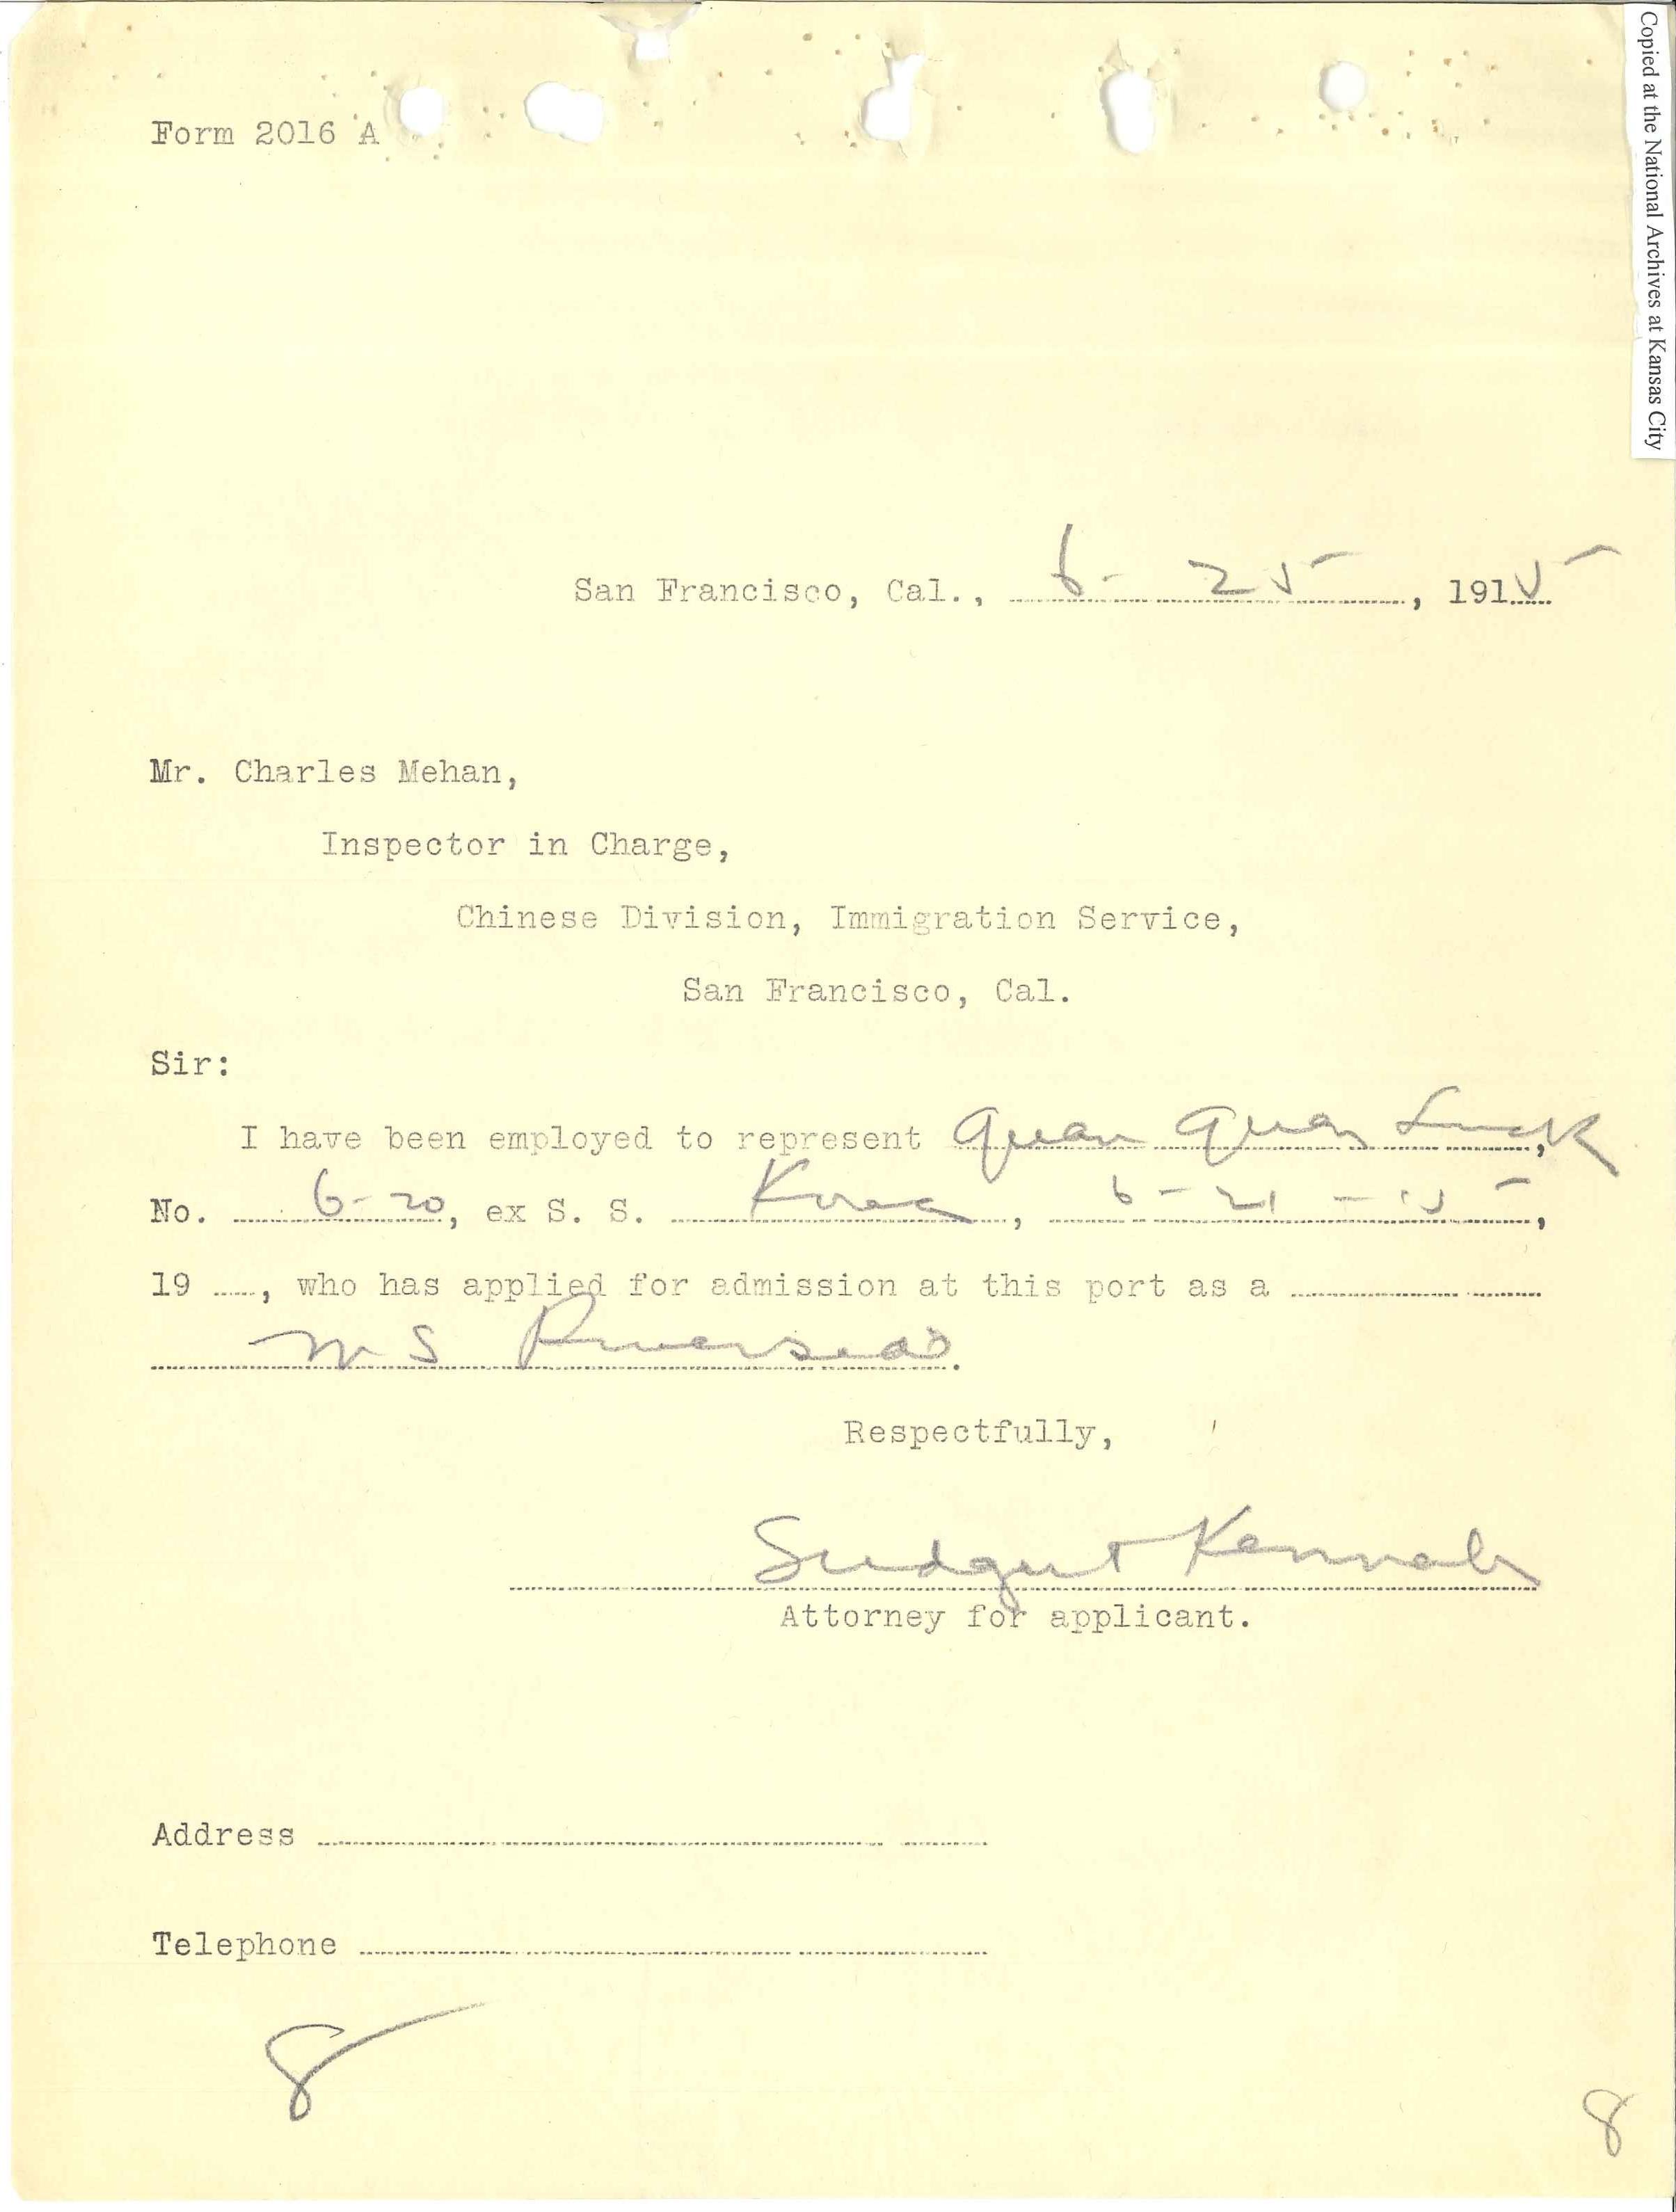 Copied at the National Archives at Kansas City
Form 2016 A
San Francisco, Cal., 6-25, 1915
Mr. Charles Mehan,
Inspector in Charge,
Chinese Division, Immigration Service,
San Francisco, Cal.
Sir:
I have been employed to represent Quan Quan Luck,
No. 6-20, ex S. S. Korea, 6-21-15,
19 , who has applied for admission at this port as a
.
Respectfully,
Kennah
Attorney for applicant.
Address
Telephone
8
8